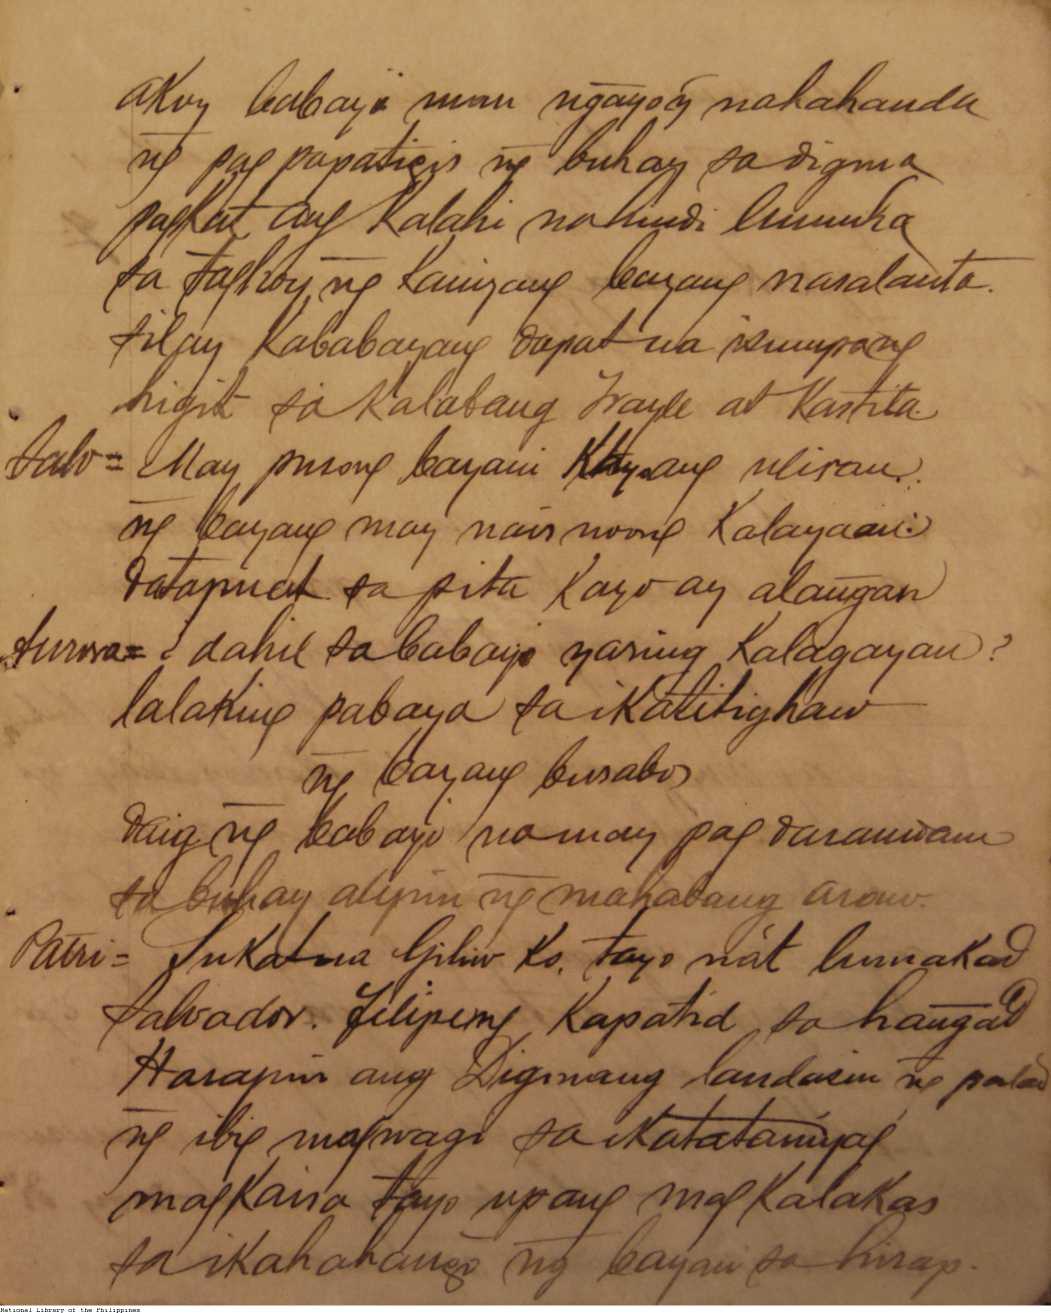 akoy babayi man ngayo'y nakahanda
ng̃ pag papatigis ng̃ buhay sa digma
pagkat ang Kalahi na hindi lumuha
sa taghoy ng̃ Kaniyang bayang nasalanta.
sila'y Kababayang dapat na isumpang
higit sa Kalabang Frayle at Kastila
Salv= May pusong bayani Kayang uliran.
ng̃ bayang may nais noong Kalayaan:
datapuat sa pita Kayo ay alang̃an
Aurora= ¿dahil sa babayi yaring Kalagayan?
lalaking pabaya sa iKatitighaw
ng̃ bayang busabos
daig ng̃ babayi na may pag daramdam
sa buhay alipin ng̃ mahabang araw.
Patri= SuKat na Giliw Ko. tayo na't lumaKad
Salvador. Filipeng Kapatid sa hang̃ad
Harapin ang Digmang landasin ng̃ palad
ng̃ ibig magwagi sa iKatatanyag
magKaisa tayo upang magKalaKas
sa iKahahang̃o ng̃ bayan sa hirap.
National Library of the Philippines